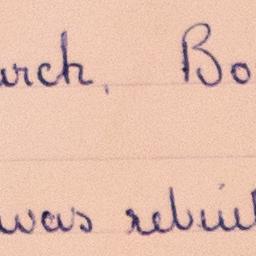 urch, Bo
was rebuil